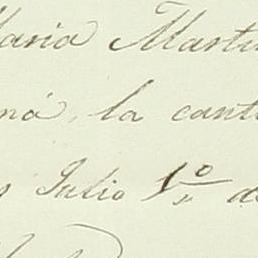 Maria Martin
ná, la cant
Julio 1º de